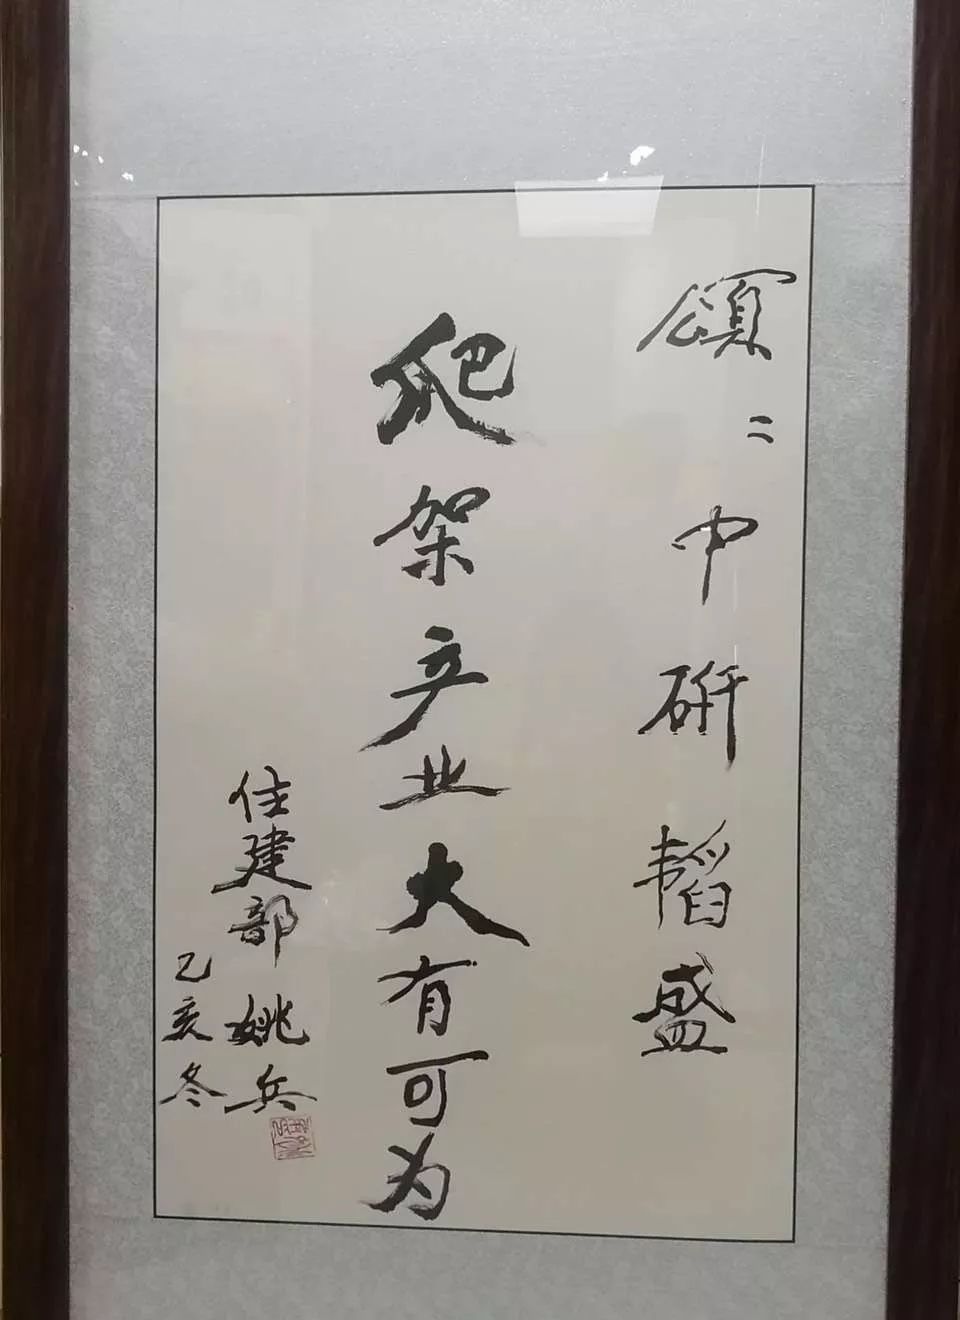 颂:中研韬盛
爬架产业大有可为
住建部 姚兵
己亥冬